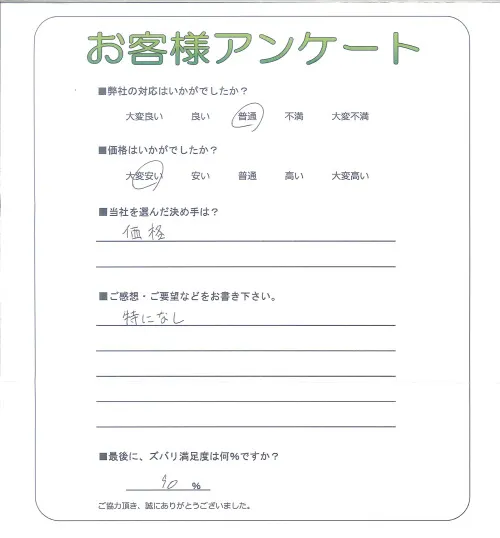 お客様アンケート
■弊社の対応はいかがでしたか？
大変良い 良い 普通 不満 大変不満
■価格はいかがでしたか？
大変安い 安い 普通 高い 大変高い
■当社を選んだ決め手は？
価格
■ご感想・ご要望などをお書き下さい。
特になし
■最後に、ズバリ満足度は何％ですか？
％
ご協力頂き、誠にありがとうございました。